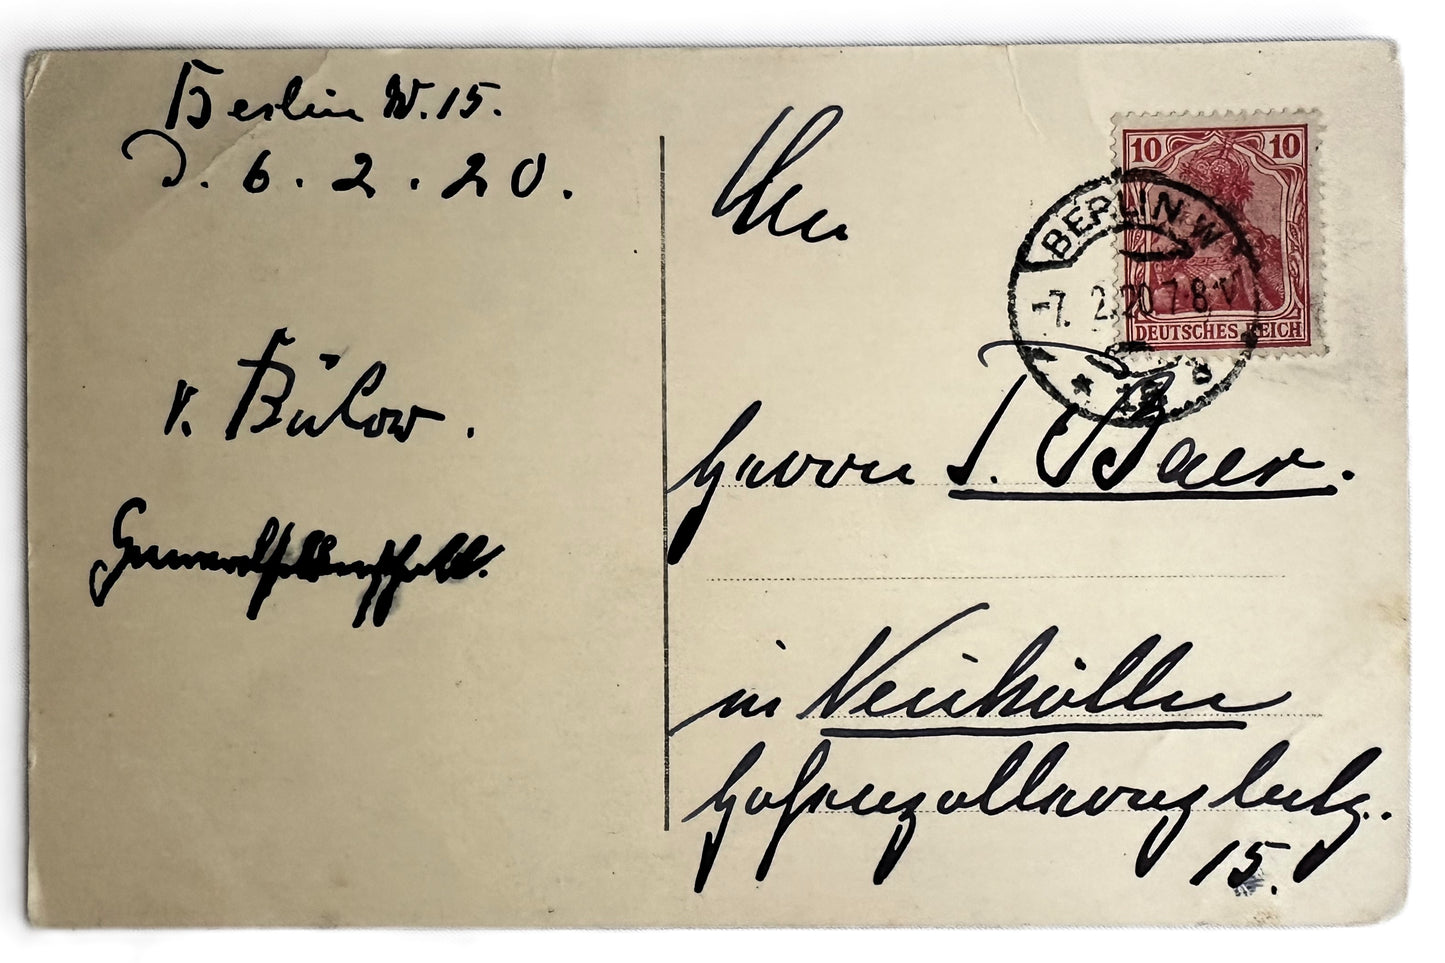 Berlin W. 15.
D. 6. 2. 20.
v. Bülow.
Generalfeldmarschall.
An
10 10
DEUTSCHES REICH
BERLIN W
-7. 2. 20. 7-8 V
* 15
Herrn J. Baer.
in Neukölln
Hohenzollernplatz.
15.